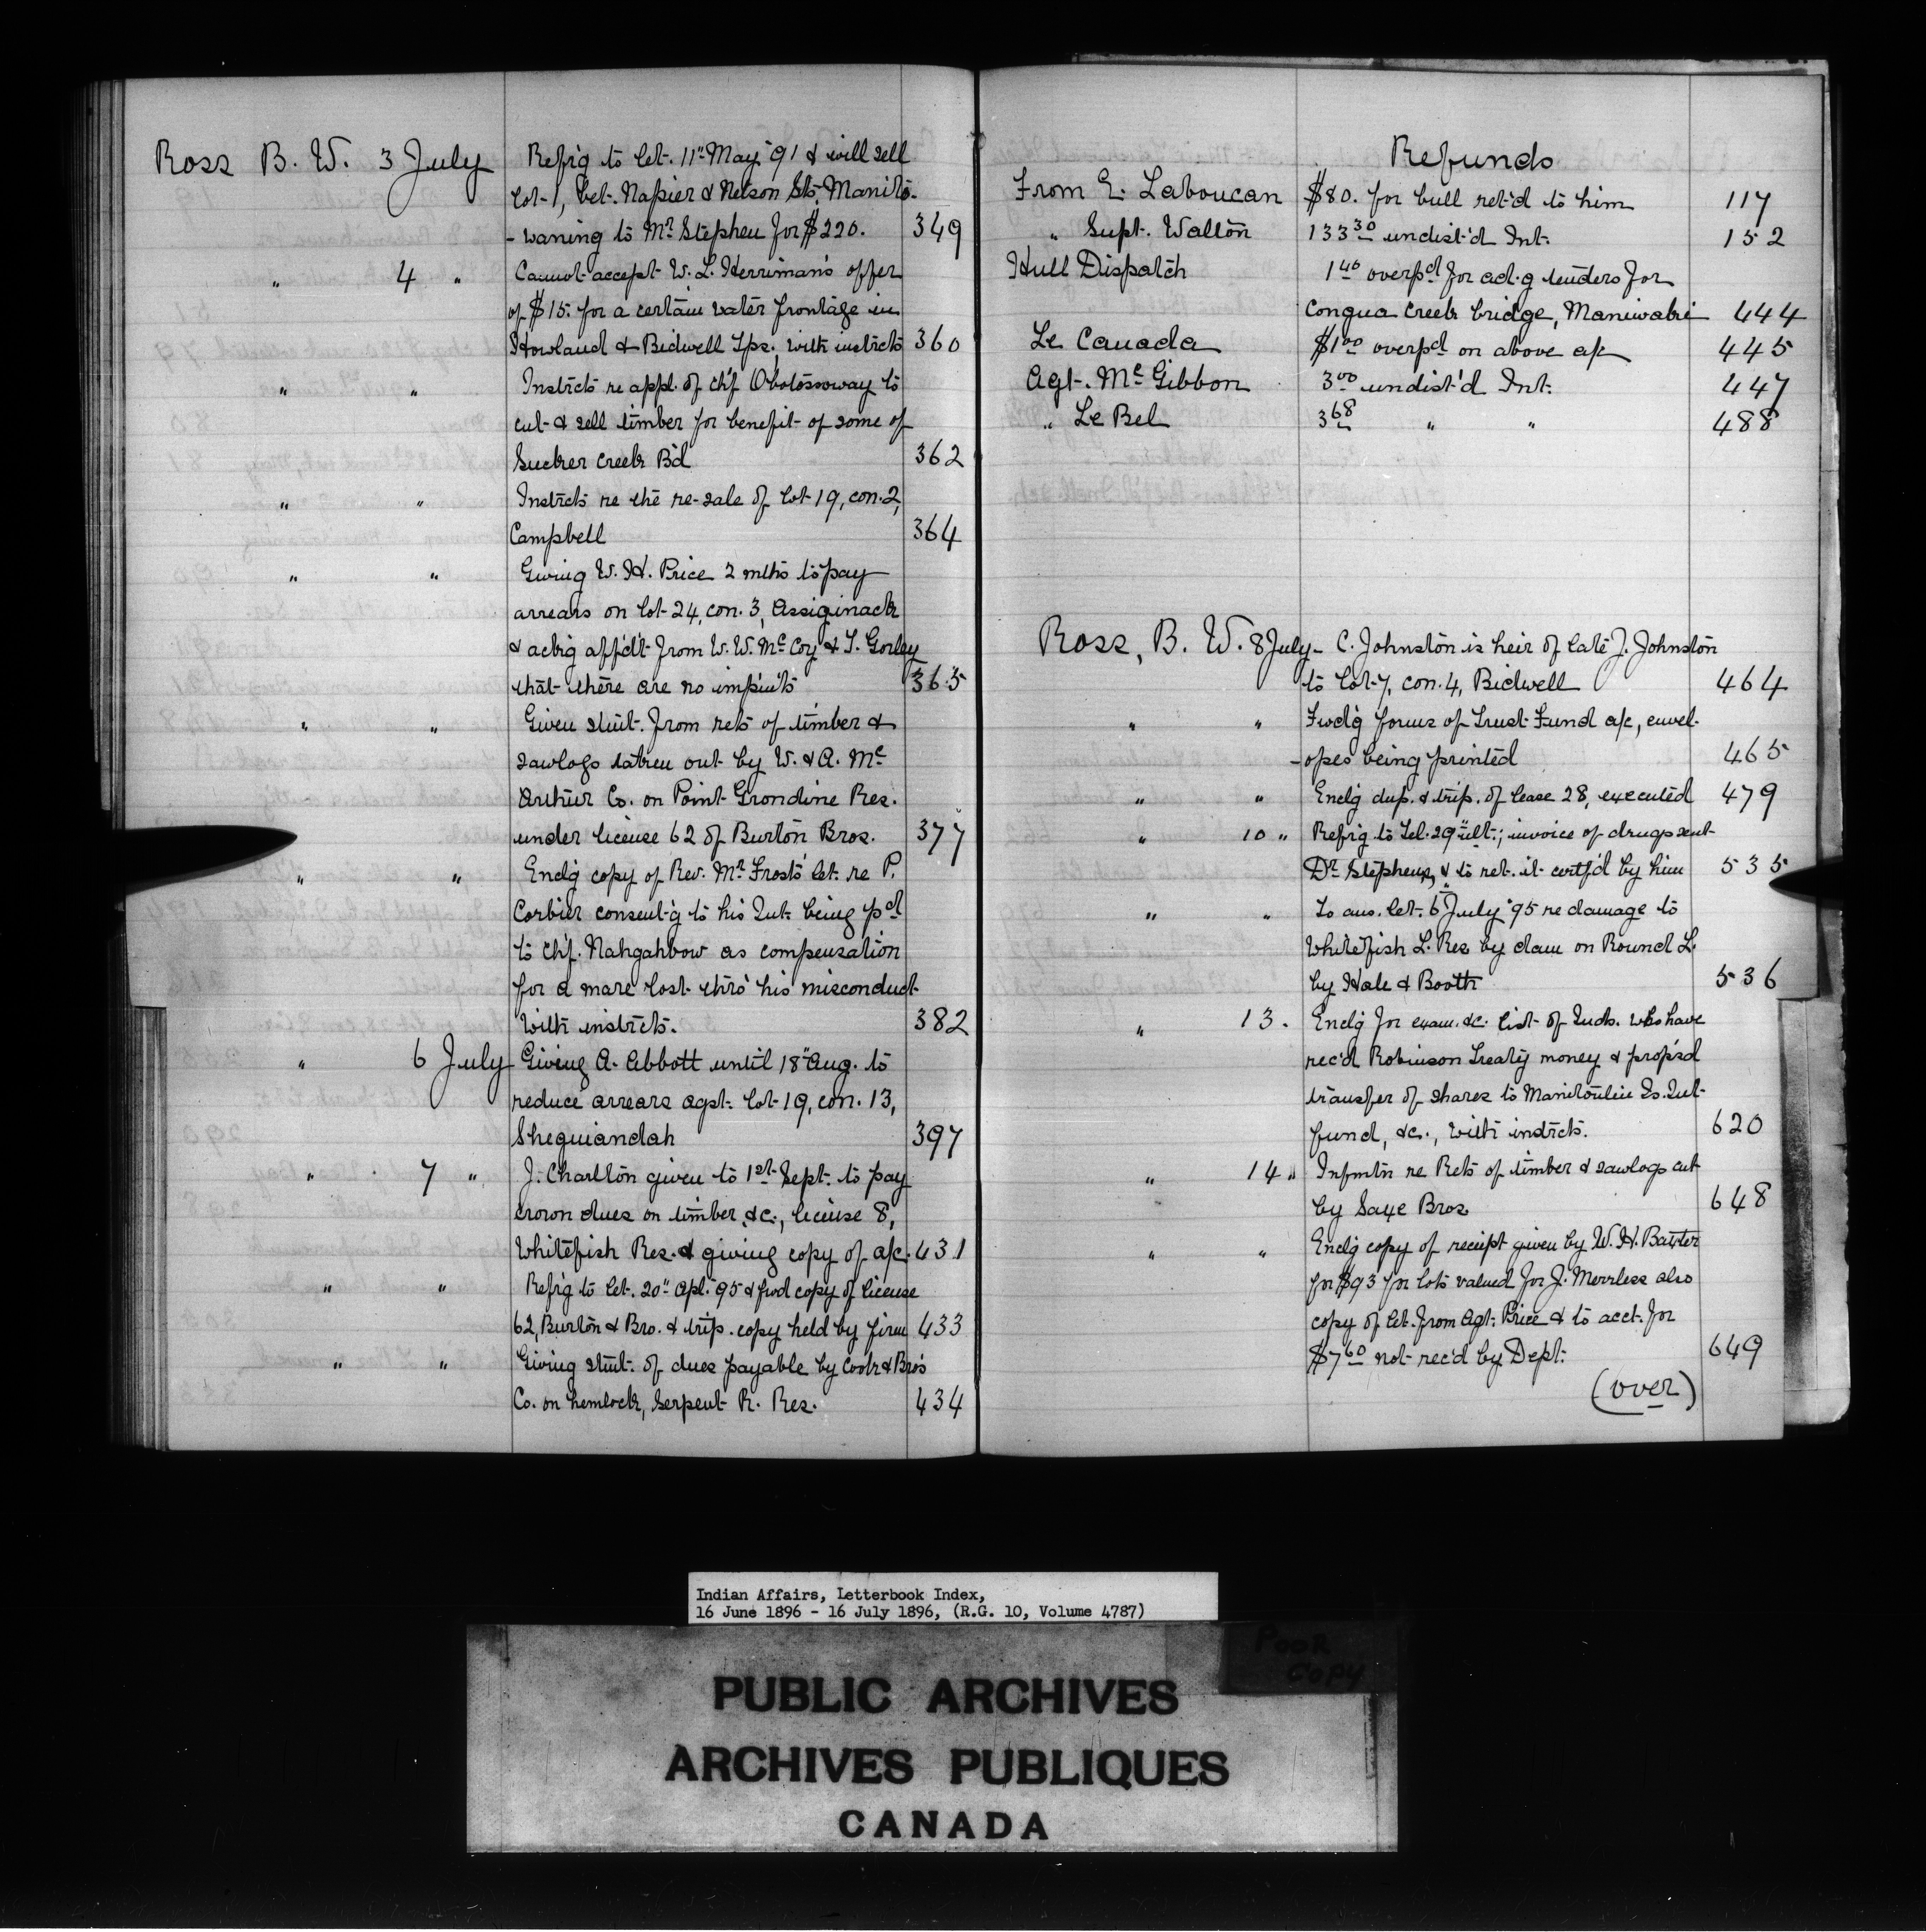 Ross B. W. 3 July Refr'g to let. 11" May '91 & will sell
lot 1, bet. Napier & Nelson Sts. Manito-
-waning to Mr. Stephen for $220. 349
" 4 " Cannot accept W. L. Herriman's offer
of $15. for a certain water frontage in
Howland & Bidwell Tps., with instrcts 360
" " Instrcts re appl. of Ch'f. Obotossoway to
cut & sell timber for benefit of some of
Sucker Creek B'd 362
" " Instrcts re the re-sale of lot 19, con. 2,
Campbell 364
" " Giving W. H. Price 2 mths to pay
arrears on lot 24, con. 3, Assiginack
& ack'g aff'd't from W. W. McCoy & T. Gorley
that there are no imp'm'ts 365
" " Given stmt. from rets of timber &
sawlogs taken out by W. & A. Mc
Arthur Co. on Point Grondine Res.
under license 62 of Burton Bros. 377
" " Encl'g copy of Rev. Mr. Frost's let. re P.
Corbier consent'g to his Int. being p'd
to Ch'f. Nahgahbow as compensation
for a mare lost thro' his misconduct
with instrcts. 382
" 6 July Giving A. Abbott until 18" Aug. to
reduce arrears agst. lot 19, con. 13,
Sheguiandah 397
" 7 " J. Charlton given to 1st Sept. to pay
crown dues on timber, &c., license 8,
Whitefish Res. & giving copy of a/c. 431
" " Refr'g to let. 20" Apl. '95 & fwd copy of license
62, Burton & Bro. & trip. copy held by firm 433
" " Giving stmt. of dues payable by Cook & Bro's
Co. on hemlock, Serpent R. Res. 434
Refunds
From E. Laboucan $80. for bull ret'd to him 117
" Supt. Walton 133 30 undist'd Int. 152
Hull Dispatch 1 40 overp'd for ad.g tenders for
Congua Creek bridge, Maniwaki 444
Le Canada $1 00 overp'd on above a/c 445
Agt. McGibbon 3 00 undist'd Int. 447
" Le Bel 3 68 " " 488
Ross, B. W. 8 July - C. Johnston is heir of late J. Johnston
to lot 7, con. 4, Bidwell 464
" " Fwd'g forms of Trust Fund a/c, envel-
-opes being printed 465
" " Encl'g dup. & trip. of lease 28, executed 479
" 10 " Refr'g to Tel. 29" ult.; invoice of drugs sent
Dr. Stephens, & to ret. it certf'd by him 535
" " To ans. let. 6" July '95 re damage to
Whitefish L. Res by dam on Round L.
by Hale & Booth 536
" 13. Encl'g for exam. &c. list of Inds. who have
rec'd Robinson Treaty money & prop's'd
transfer of shares to Manitoulin Is. Int.
fund, &c., with instrcts. 620
" 14 " Infmtn re Rets of timber & sawlogs cut
by Saye Bros. 648
" " Encl'g copy of receipt given by W. H. Baxter
for $93 for lots valued for J. Merrless also
copy of let. from Agt. Price & to acct. for
$7 60 not rec'd by Dept. 649
(over)
Indian Affairs, Letterbook Index,
16 June 1896 - 16 July 1896, (R.G. 10, Volume 4787)
POOR
COPY
PUBLIC ARCHIVES
ARCHIVES PUBLIQUES
CANADA